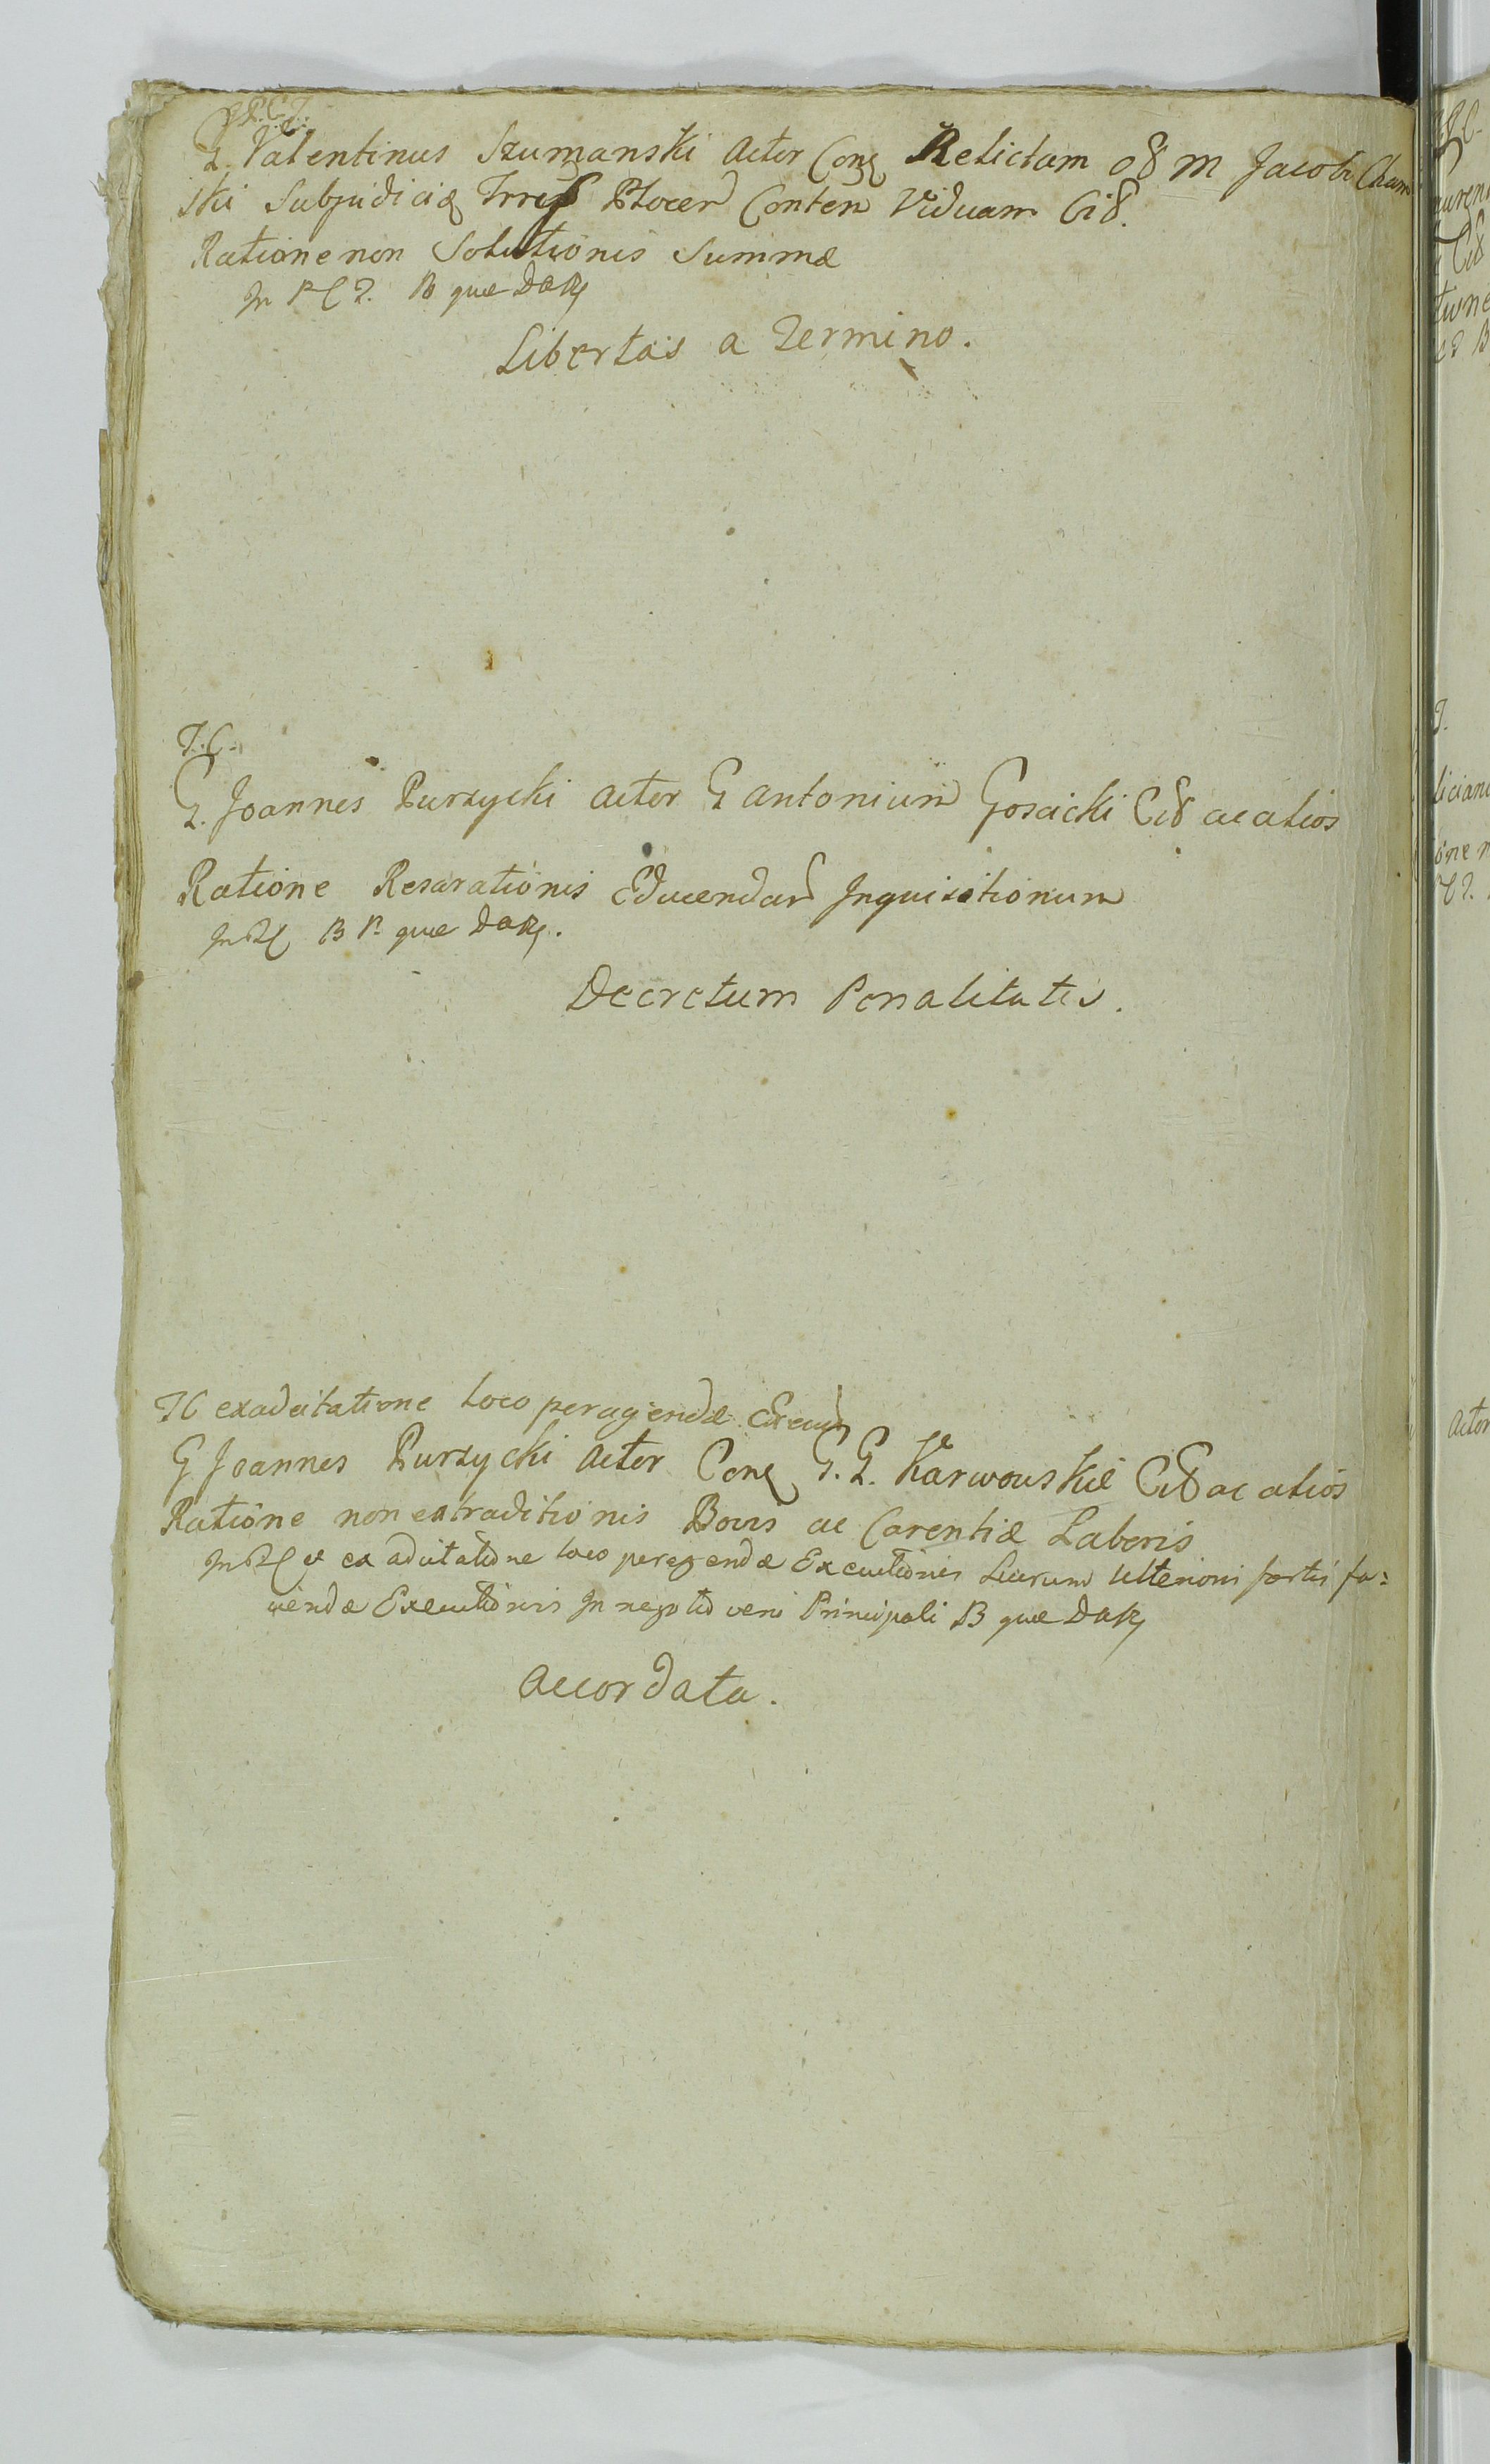 P. C. T.
G. Valentinus Szumanski Actor Conq Relictam ob m Jacobi Cham
ski Subjudiciq Trris Plocen Conten Viduam Cit.
Ratione non Solutionis Summæ
In P C T. B que DaR
Libertas a Termino.
T. C.
G. Joannes Purzycki Actor G Antonium Goscicki Cit ac alios
Ratione Reserationis Educendar Inquisitionum
In B P que DaR.
Decretum Penalitatis.
TC ex adcitatione loco peragendæ Execut
G Joannes Purzycki Actor Conq G. G. Karwouskie Cit ac alios
Ratione non extraditionis Bovis ac Carentiæ Laboris
In ex adcitatione loco peragendæ Executionis Lucrum Ulterioni fortis fa=
ciendæ Executionis In negotio vero Principali B que DaR
Accordata.